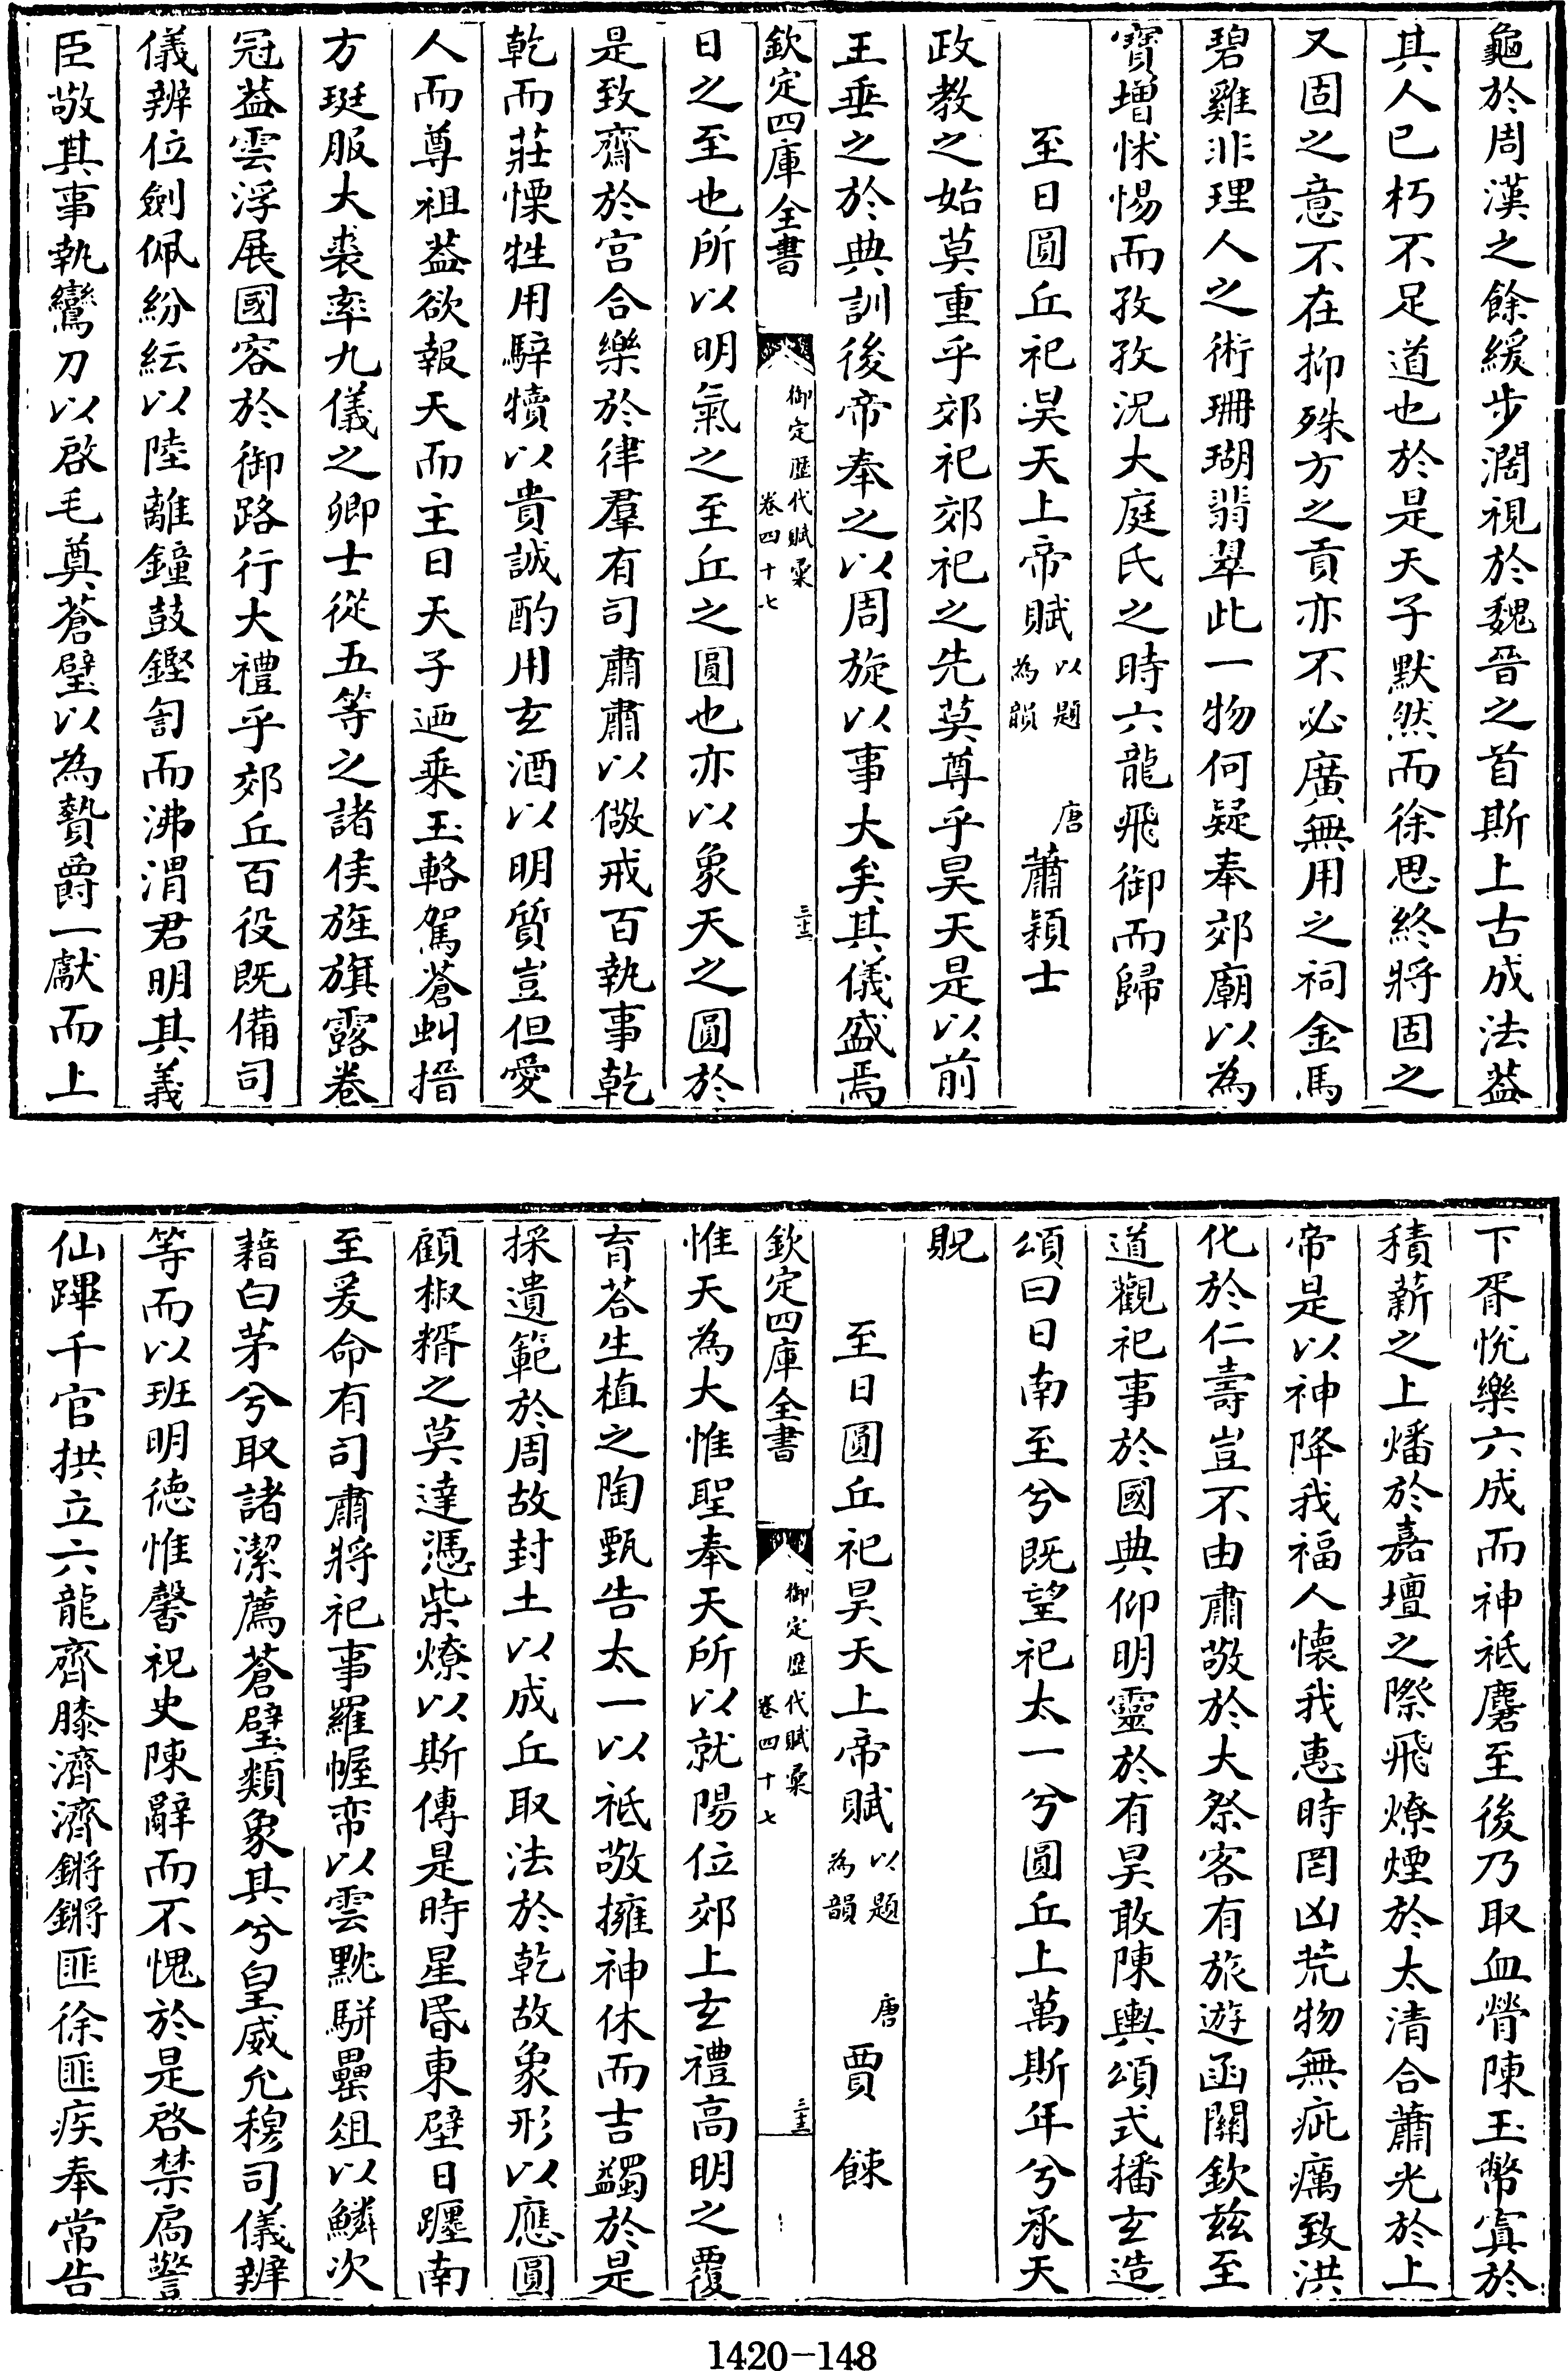 龜於周漢之餘緩步濶視於魏晉之首斯上古成法葢
其人已朽不足道也於是天子默然而徐思終將固之
又固之意不在抑殊方之貢亦不必廣無用之祠金馬
碧雞非理人之術珊瑚翡翠此一物何疑奉郊廟以為
寶增怵惕而孜孜況大庭氏之時六龍飛御而歸
至日圓丘祀昊天上帝賦以題為韻 唐蕭穎士
政教之始莫重乎郊祀郊祀之先莫尊乎昊天是以前
王垂之於典訓後帝奉之以周旋以事大矣其儀盛焉
欽定四庫全書 御定歷代賦彙卷四十七 三十二
日之至也所以明氣之至丘之圓也亦以象天之圓於
是致齋於宮合樂於律羣有司肅肅以儆戒百執事乾
乾而莊慄牲用騂犢以貴誠酌用玄酒以明質豈但愛
人而尊祖葢欲報天而主日天子廼乘玉輅駕蒼虯搢
方珽服大裘率九儀之卿士從五等之諸侯旌旗露卷
冠葢雲浮展國容於御路行大禮乎郊丘百役既備司
儀辨位劍佩紛紜以陸離鐘鼓鏗訇而沸渭君明其義
臣敬其事執鸞刀以啟毛奠蒼璧以為贄爵一獻而上
下胥悅樂六成而神祇麕至後乃取血膋陳玉幣寘於
積薪之上燔於嘉壇之際飛燎煙於太清合蕭光於上
帝是以神降我福人懷我惠時罔凶荒物無疵癘致洪
化於仁壽豈不由肅敬於大祭客有旅遊函關欽兹至
道觀祀事於國典仰明靈於有昊敢陳輿頌式播玄造
頌曰日南至兮既望祀太一兮圓丘上萬斯年兮承天
貺
至日圓丘祀昊天上帝賦以題為韻 唐賈餗
欽定四庫全書 御定歷代賦彙卷四十七 三十三
惟天為大惟聖奉天所以就陽位郊上玄禮高明之覆
育荅生植之陶甄告太一以祗敬擁神休而吉蠲於是
採遺範於周故封土以成丘取法於乾故象形以應圓
顧椒糈之莫達憑柴燎以斯傳是時星昏東壁日躔南
至爰命有司肅將祀事羅幄帟以雲黕駢罍俎以鱗次
藉白茅兮取諸潔薦蒼璧類象其兮皇威允穆司儀辨
等而以班明德惟馨祝史陳辭而不愧於是啓禁扃警
仙蹕千官拱立六龍齊膝濟濟鏘鏘匪徐匪疾奉常告
1420-148